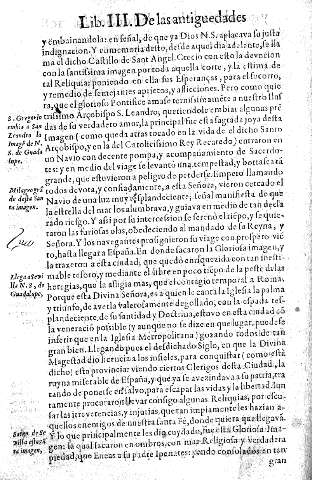 Lib. III. De las antiguedades
y embainandola: en señal, de que ya Dios N. S. aplacava su justa
indignacion. Y en memoria desto, desde aquel dia adelante, se lla
ma el dicho Castillo de Sant Angel. Crecio con esto la devocion
con la santissima imagen por toda aquella corte, y la estima de
tal Reliquia: poniendo en ella sus Esperanças, para el socorro,
y remedio de semejantes aprietos, y aflicciones. Pero como quie
ra, que el glorioso Pontifice amasse ternissimamente a nuestro Ilus
trissimo Arçobispo S. Leandro, queriendole embiar algunas pre
das de su verdadero amor, la principal fue esta sagrada joya desta
Imagen (como queda atras tocado en la vida de el dicho Santo
Arçobispo, y en la del Catolicissimo Rey Recaredo) entraron en
un Navio con decente pompa, y acompañamiento de Sacerdo-
tes: y en medio del viage se levantò una tempestad, y borrasca tã
grande, que estuvieron a peligro de perderse. Empero llamando
todos devota, y confiadamente, a esta Señora, vieron cercado el
Navio de una luz muy resplandeciente; señal manifiesta de que
la estrella del mar los alumbrava, y guiava en medio de tan decla
rado riesgo. Y assi por su intercession se serenò el tiēpo, y se quie
taron las furiosas olas, obedeciendo al mandado de su Reyna, y
Señora. Y los navegantes prosiguieron su viage con prospero viē
to, hasta llegar a España. En donde sacaron la Gloriosa imagen, y
la traxeron a esta ciudad, que quedò enriquezida con tan inesti-
mable tesoro, y mediante el libre en poco tiēpo de la peste de las
heregias, que la afligia mas, que el contagio temporal a Roma.
Porque esta Divina Señora, es a quien le canta la Iglesia la palma
y triunfo, de averla valerosamente degollado, con la espada res-
plandeciente, de su santidad y Doctrina, estuvo en esta ciudad cō
la veneracion posible (y aunque no se dize en que lugar, puede se
inferir que en la Iglesia Metropolitana) gozando todos de tan
gran bien. Llegando pues el desdichado Siglo, en que la Divina
Magestad dio licencia a los infieles, para conquistar (como està
dicho) esta provincia: viendo ciertos Clerigos desta Ciudad, la
ruyna miserable de España, y que ya se avezindava a su patria, tra
tando de ponerse en salvo, para escapar las vidas y la libertad. Iun
tamente procuraron llevar consigo algunas Reliquias, por escu-
sar las irreverencias, y injurias, que tan impiamente les hazian a-
quellos enemigos de nuestra santa Fè, donde quiera que llegavã.
Y lo que principalmente les diò cuydado, fue esta Gloriosa Ima-
gen: la qual sacaron en ombros, con mas Religiosa y verdadera
piedad, que Eneas a su padre Ipenates: yendo consolados en tan
gran
S. Gregorio
embia a San
Leandro la
Imagē de N.
S. de Guada
lupe.
Milagros
de desta San
ta imagen.
Llega a Sevi
lla N. S. de
Guadalupe.
Sacan de Se
villa esta san
ta imagen.